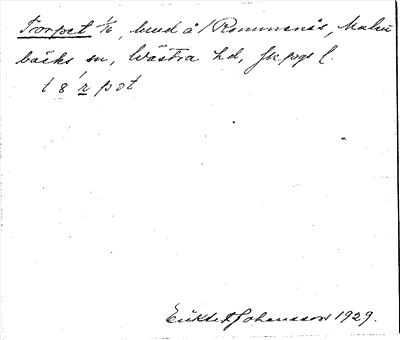 Torpet 1/6, hmd å Rommenås, Malm
bäcks sn, Västra hd, Jkpgs l.
t 8 ŕ p o t
Eriks A Johansson 1929.